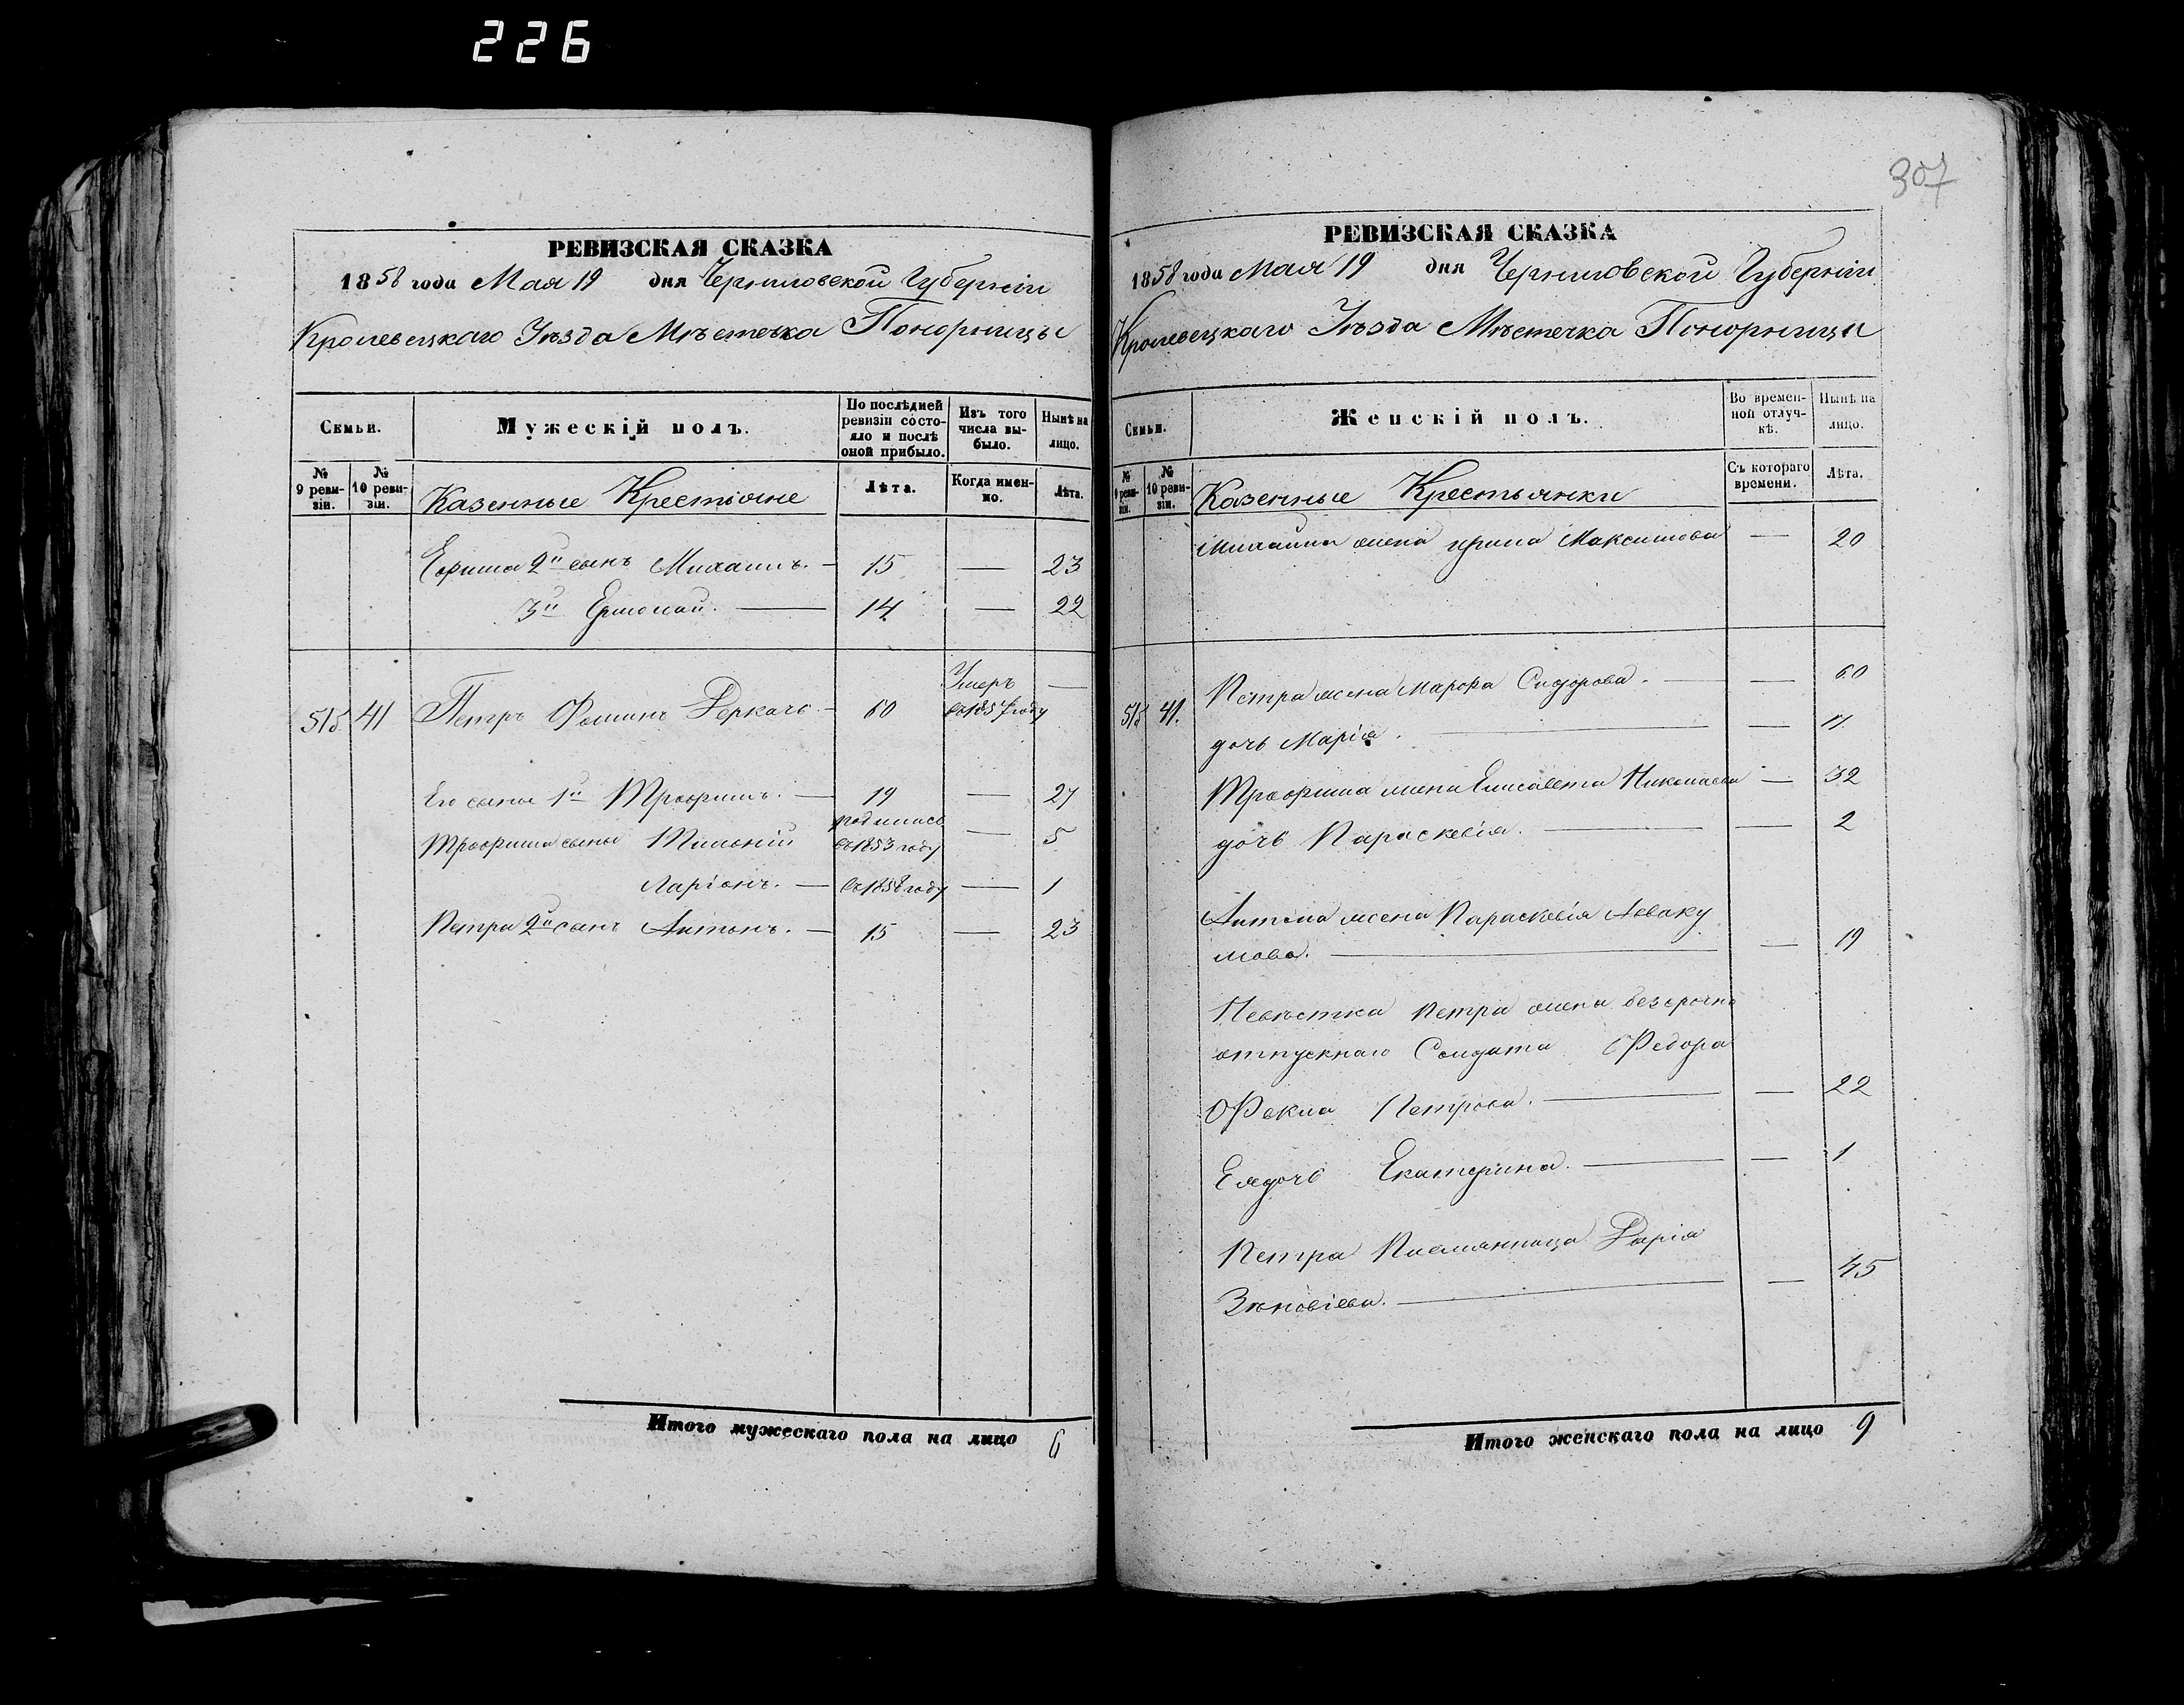 226
307
РЕВИЗСКАЯ СКАЗКА
1858 года Мая 19 дня Черниговской Губерніи
Кролевецкаго Уѣзда Мѣстечка Понорницы
Семьи.
Мужескій полъ.
По послѣдней ревизіи состояло и послѣ оной прибыло.
Изъ того числа выбыло.
Нынѣ на лицо.
№ 9 ревизіи.
№ 10 ревизіи.
Казенные Крестьяне
Лѣта.
Когда именно.
Лѣта.
Ефима 2й сынъ Михаилъ. — 15 — 23
3й Ермолай. — 14 — 22
Умеръ —
41 Петръ Фоминъ Деркачъ — 60 въ 1857 году
Его сынъ 1й Трофимъ. — 19 — 27
родился
Трофима сыны въ 1853 году — 5
Ларіонъ. — въ 1858 году — 1
Петра 2й сынъ Антонъ. — 15 — 23
Итого мужескаго пола на лицо 6
РЕВИЗСКАЯ СКАЗКА
1858 года Мая 19 дня Черниговской Губерніи
Кролевецкаго Уѣзда Мѣстечка Понорницы
Семьи.
Женскій полъ.
Во временной отлучкѣ.
Нынѣ на лицо.
№ 9 ревизіи.
№ 10 ревизіи.
Казенные Крестьянки
Съ котораго времени.
Лѣта.
Михаила жена Ирина Максимова — 20
41. Петра жена Марфа Сидорова. — — 60
дочь Марія. — —
Трофима жена Елисавета Николаева — 32
дочь Параскевія. — — 2
Антона жена Параскевія Авваку
мова. — — 19
Невѣстка Петра жена безсрочно
отпускнаго Солдата Федора
Фекла Петрова. — — 22
Ея дочь Екатерина. — — 1
Петра Племянница Дарія
Зѣновіева. — — 45
Итого женскаго пола на лицо 9